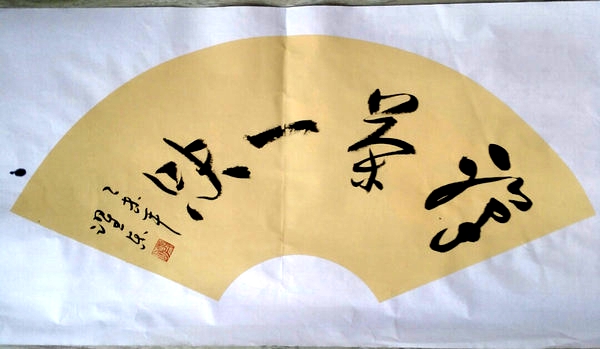 禅茶一味
乙未年